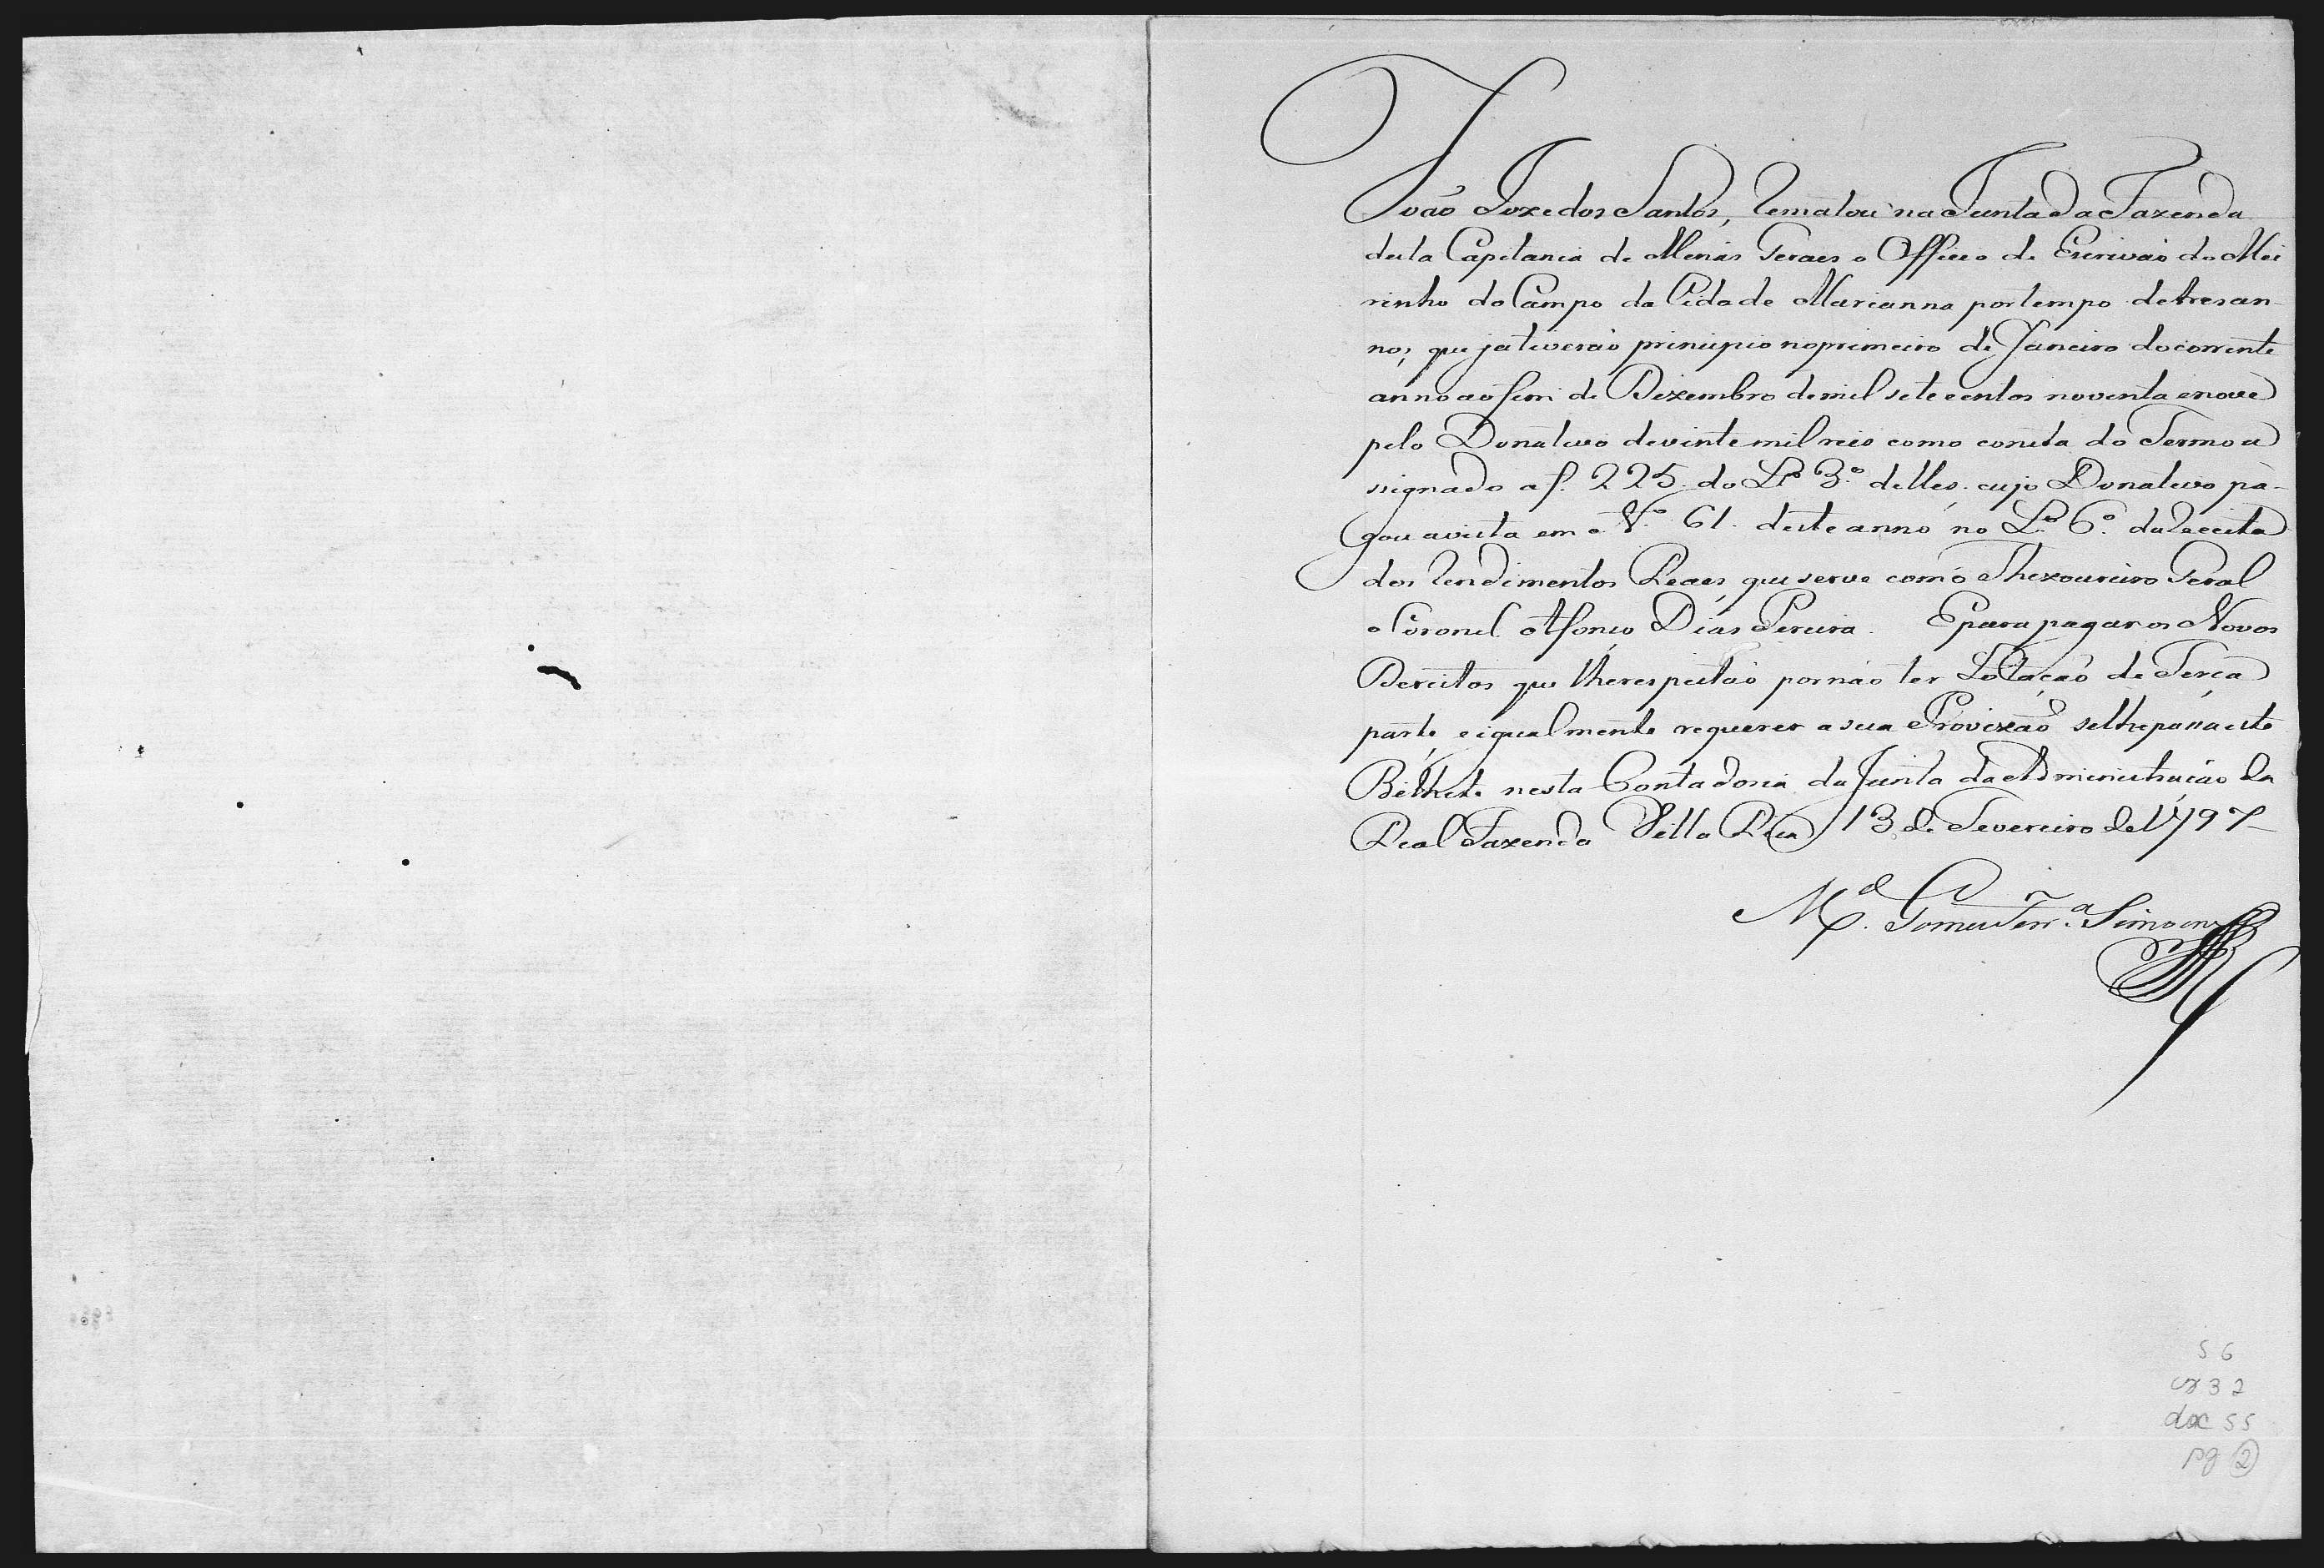 João Joze dos Santos, Rematou na Junta da Fazenda
desta Capitania de Minas Geraes o Officio de Escrivaõ do Mei
rinho do Campo da Cidade Marianna por tempo de tres an-
nos, que ja tiveraõ principio no primeiro de Janeiro do corrente
anno ao fim de Dezembro de mil sete centos noventa e nove
pelo Donativo de vinte mil reis como consta do Termo a
ssignado a f. 225. do L.º 3.º delles. cujo Donativo pa-
gou avista em o N.º 61. deste anno no L.º 6.º da Receita
dos Rendimentos Reaes, que serve com o Thezoureiro Geral
o Coronel Afonço Dias Pereira. E para pagar os Novos
Dereitos que lhe respeitaõ por naõ ter Lotaçaõ de Terça
parte, e igualmente requerer a sua Provizaõ se lhe passa este
Bilhete nesta Contadoria da Junta da Administraçaõ da
Real Fazenda Villa Rica 13 de Fevereiro de 1797
M.el Gomes Ferr.a Simoens
56
cx 32
doc 55
pg 2